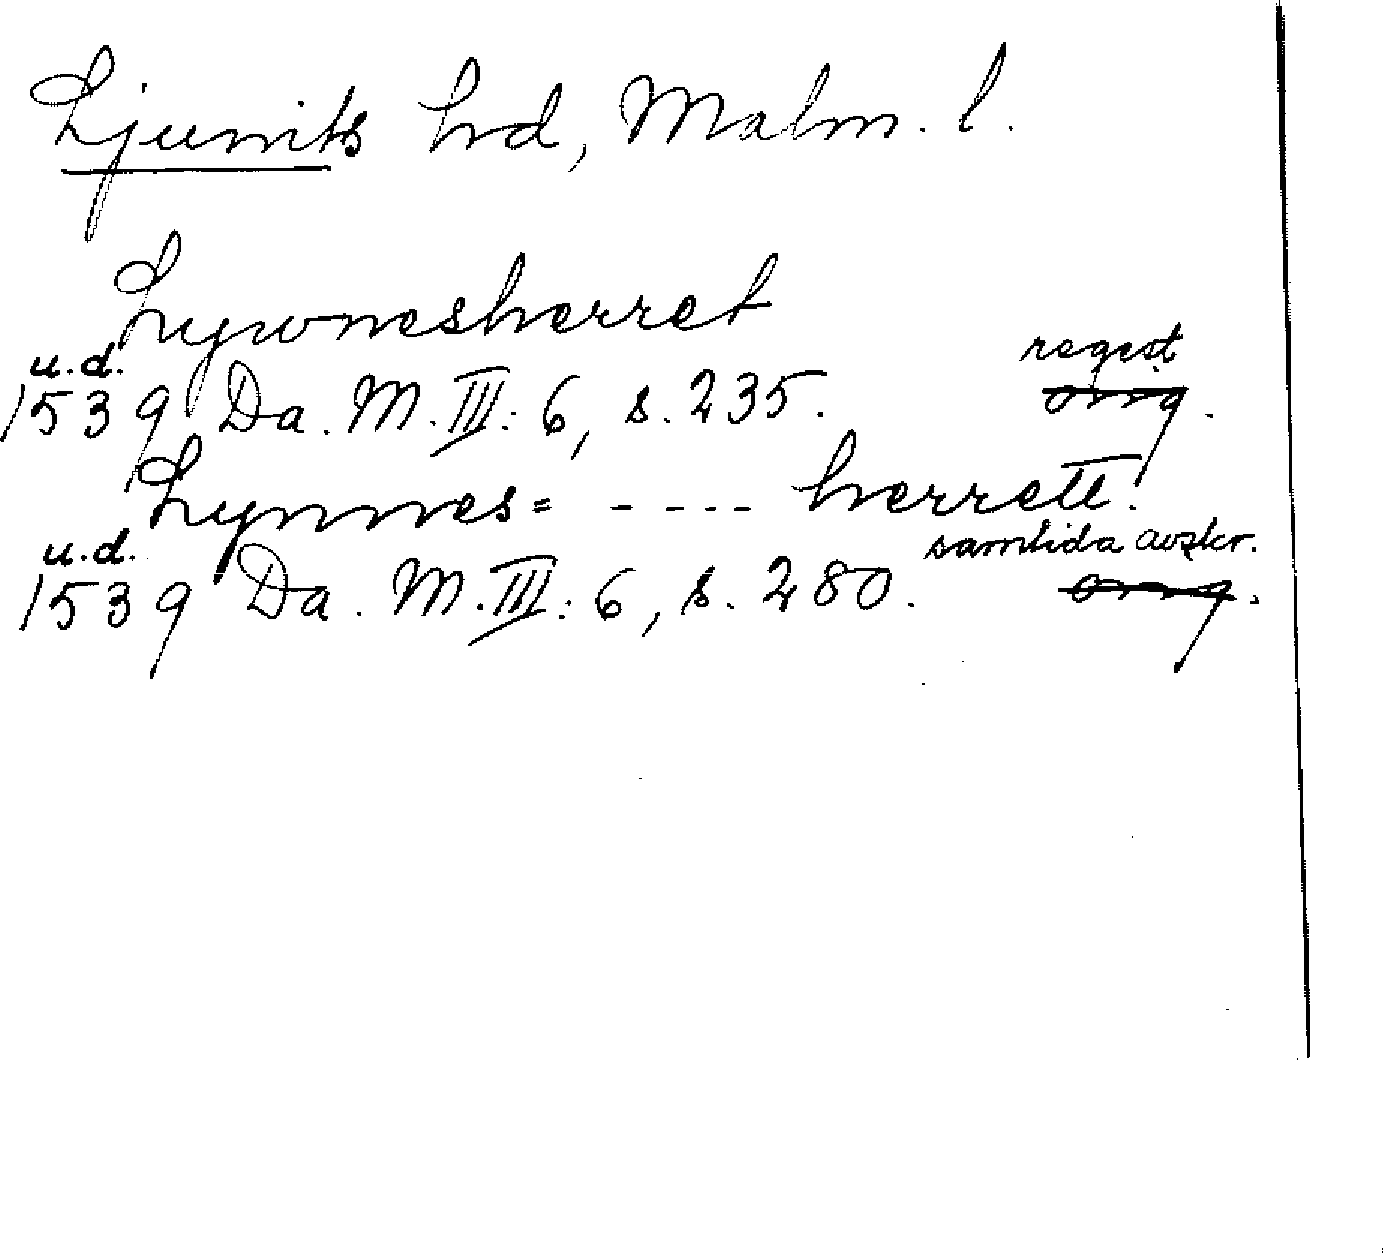 Ljunits hd, Malm. l.
Lywnesherret
u.d. regest
1539 Da. M. III: 6, s. 235. orig.
Lynnes= - - - - herrett.
u.d. samtida avskr.
1539 Da. M. III: 6, s. 280. orig.